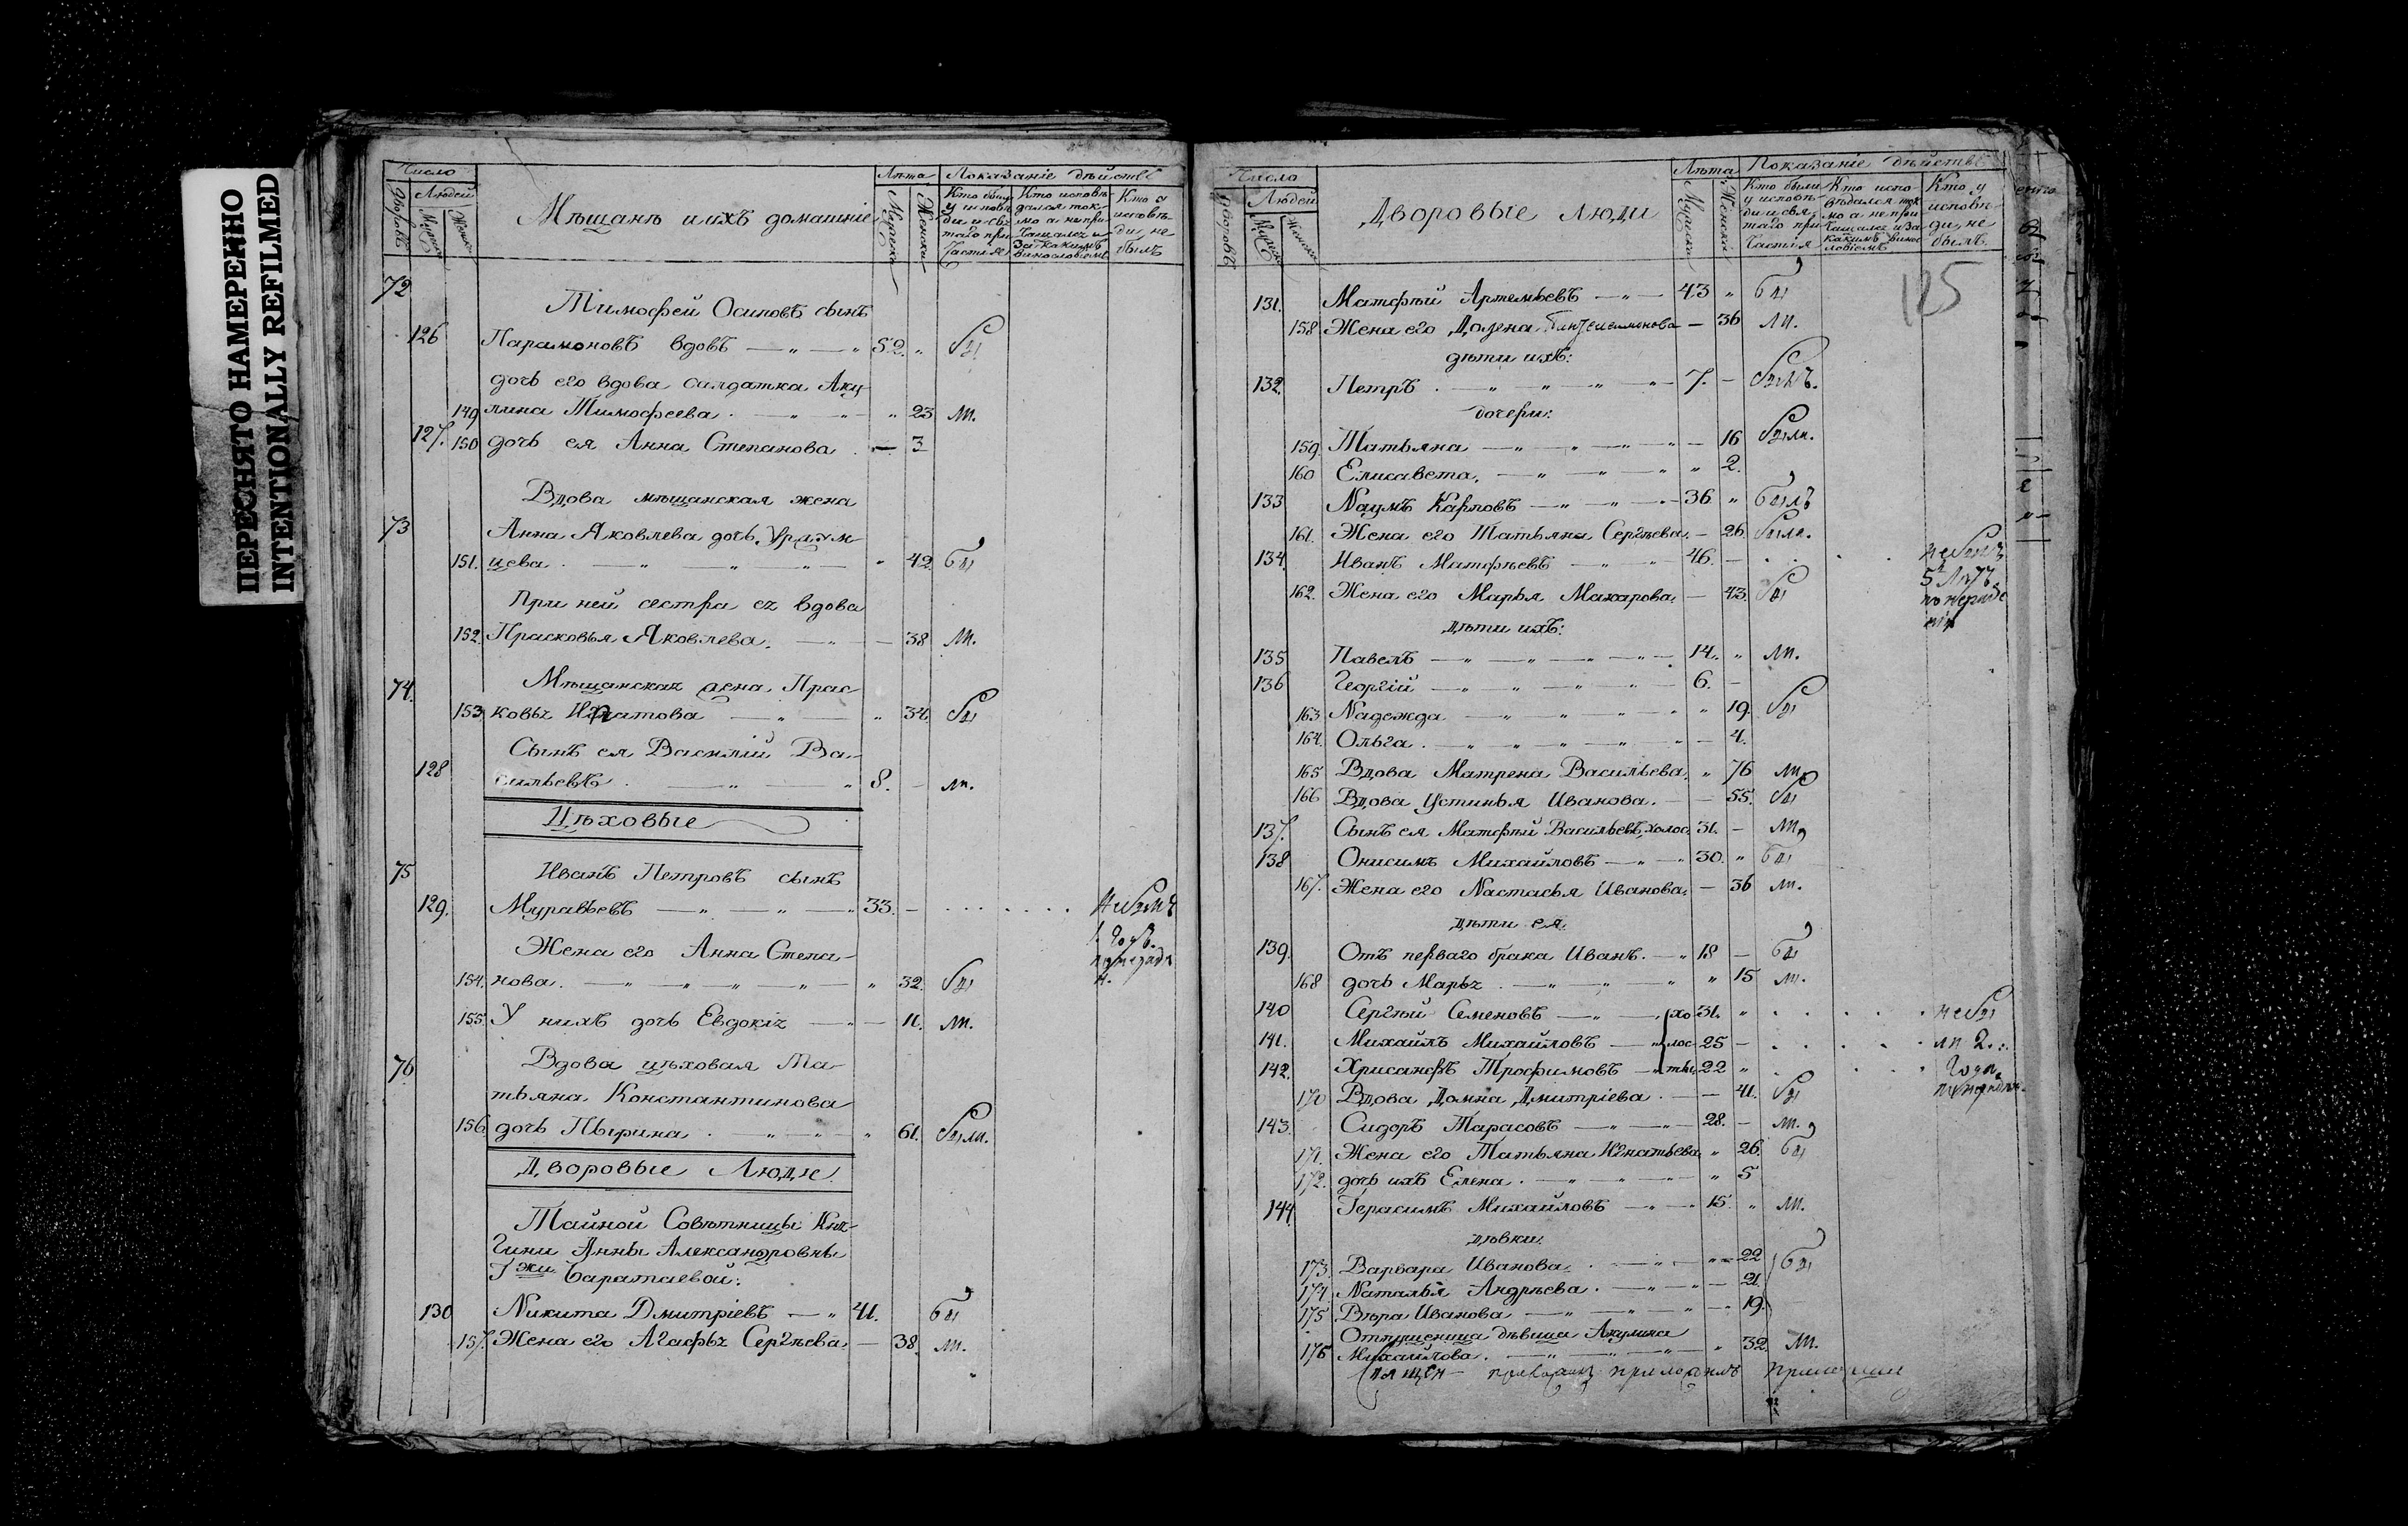 ПЕРЕСНЯТО НАМЕРЕННО
INTENTIONALLY REFILMED
Число
Лѣта
Показаніе дѣйствъ
Дворовъ
Людей
Мужеска
Женска
Мѣщанѣ и ихъ домашніе
Мужеска
Женска
Кто были у исповѣди и святаго причастія
Кто исповѣдался токмо а не причащался и за какимъ винословіемъ
Кто у исповѣди не былъ
72
Тимофей Осиповъ сынъ
126 Парамоновъ вдовъ — „ — „ 52. „ бы
дочь его вдова салдатка Аку-
149 лина Тимофеева . — „ „ — „ 23 ли.
127. 150 дочь ея Анна Степанова . — 3
Вдова мѣщанская жена
73 Анна Яковлева дочь
151. цева . — „ „ „ — „ 42. бы
При ней сестра ея вдова
152. Прасковья Яковлева. — „ — 38 ли.
74. Мѣщанская жена Прас-
153 ковья Игнатова — „ — „ 34. бы
Сынъ ея Василій Ва-
128 сильевъ . — „ — „ 8. — ли.
Цѣховые
75 Иванъ Петровъ сынъ
129. Муравьевъ — „ — „ — „ 33. — . . . . . . небылъ
1. годъ.
Жена его Анна Степа-
154. нова . — „ — „ — „ — „ 32. бы
155. У нихъ дочь Евдокія — „ — 11. ли.
76 Вдова цѣховая Та-
тьяна Константинова
156 дочь Пырина . — „ — „ — „ 61. были.
Дворовые Люди.
Тайной Совѣтницы Кня-
гини Анны Александровны
Гжи Баратаевой:
130 Никита Дмитріевъ — „ 41. бы
157. Жена его Агафья Сергѣева. — 38. ли.
Число
Лѣта
Показаніе дѣйствъ
Дворовъ
Людей
Мужеска
Женска
Дворовые люди
Мужеска
Женска
Кто были у исповѣди и святаго причастія
Кто исповѣдался токмо а не причащался и за какимъ винословіемъ
Кто у исповѣди не былъ.
125
131. Матфѣй Артемьевъ — „ — 43 „ бы
158 Жена его — 36 ли.
дѣти ихъ:
132. Петръ . — „ „ „ „ — 7. — былъ.
дочери:
159. Татьяна — „ — „ — „ „ — 16 были.
160 Елисавета. — „ — „ — „ „ 2.
133 Наумъ Карповъ — „ — „ — 36 „ былъ
161. Жена его Татьяна Сергѣева. — 26. были.
134. Иванъ Матфѣевъ — „ „ 46. — . . . . небылъ
5ть лѣтъ
162. Жена его Марья Макарова. — 43. бы
дѣти ихъ:
135 Павелъ — „ — „ — „ — „ — 14. „ ли.
136 Георгій — „ „ — „ „ — 6. —
163 Надежда — „ — „ — „ „ 19. бы
164. Ольга . — „ „ — „ „ — 4.
165 Вдова Матрена Васильева. „ 76 ли
166 Вдова Устинья Иванова. — — 55. бы
137. Сынъ ея Матфѣй Васильевъ, холос. 31. — ли
138 Онисимъ Михайловъ — „ — „ 30. „ бы
167. Жена его Настасья Иванова. — 36 ли.
дѣти ея.
139. Отъ перваго брака Иванъ. — „ 18 — бы
168 дочь Марья . — „ — „ „ „ 15 ли.
140 Сергѣй Семеновъ — „ — хо 31. „ . . . . . небы
141. Михаилъ Михайловъ — „ лос 25 — . . . . . ли 2.
142. Хрисанфъ Трофимовъ — „ ты 22 „ . . . года
170 Вдова Домна Дмитріева . — — 41. бы
143. Сидоръ Тарасовъ — „ — „ 28. — ли.
171. Жена его Татьяна Игнатьева „ 26. бы
172. дочь ихъ Елена . — „ „ — „ 5
144 Герасимъ Михайловъ — „ — „ 15. „ ли.
дѣвки.
173. Варвара Иванова. . — „ — „ — 22 бы
174. Наталья Андрѣева . — „ — „ — 21.
175 Вѣра Иванова — „ — „ „ — 19.
Отпущеница дѣвица Акулина
176 Михайлова . — „ — „ — „ 32. ли.